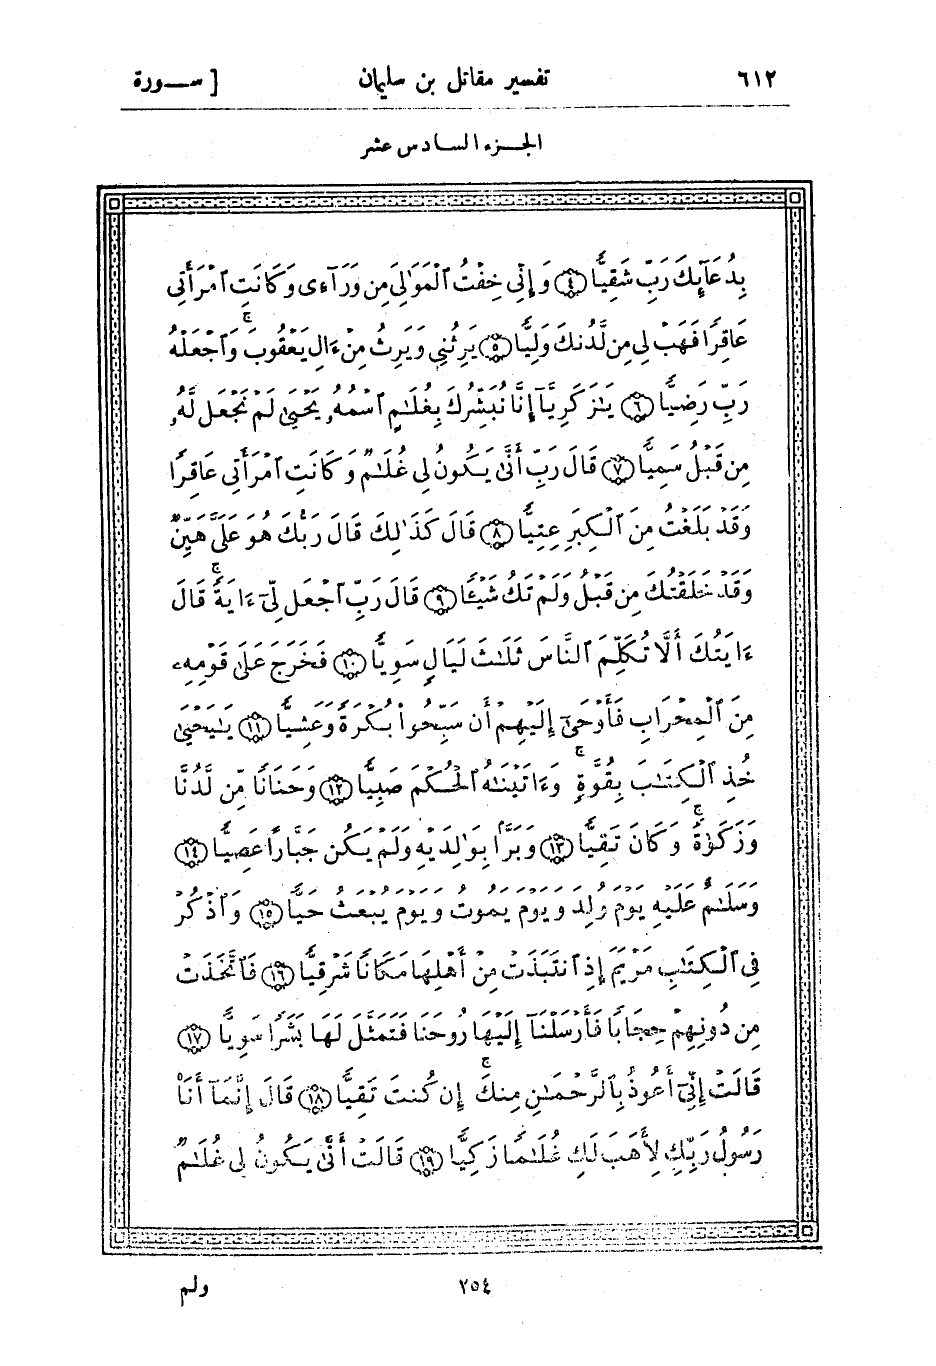 ٦١٢ تفسير مقاتل بن سليمان [ ســورة
الجـزء السادس عشر
بِدُعَآئِكَ رَبِّ شَقِيًّا ٤ وَإِنِّي خِفْتُ ٱلْمَوَٰلِيَ مِن وَرَآءِى وَكَانَتِ ٱمْرَأَتِي
عَاقِرًا فَهَبْ لِي مِن لَّدُنكَ وَلِيًّا ٥ يَرِثُنِي وَيَرِثُ مِنْ ءَالِ يَعْقُوبَ ۖ وَٱجْعَلْهُ
رَبِّ رَضِيًّا ٦ يَٰزَكَرِيَّآ إِنَّا نُبَشِّرُكَ بِغُلَٰمٍ ٱسْمُهُۥ يَحْيَىٰ لَمْ نَجْعَل لَّهُۥ
مِن قَبْلُ سَمِيًّا ٧ قَالَ رَبِّ أَنَّىٰ يَكُونُ لِي غُلَٰمٌ وَكَانَتِ ٱمْرَأَتِي عَاقِرًا
وَقَدْ بَلَغْتُ مِنَ ٱلْكِبَرِ عِتِيًّا ٨ قَالَ كَذَٰلِكَ قَالَ رَبُّكَ هُوَ عَلَيَّ هَيِّنٌ
وَقَدْ خَلَقْتُكَ مِن قَبْلُ وَلَمْ تَكُ شَيْـًٔا ٩ قَالَ رَبِّ ٱجْعَل لِّيٓ ءَايَةً ۚ قَالَ
ءَايَتُكَ أَلَّا تُكَلِّمَ ٱلنَّاسَ ثَلَٰثَ لَيَالٍ سَوِيًّا ١٠ فَخَرَجَ عَلَىٰ قَوْمِهِۦ
مِنَ ٱلْمِحْرَابِ فَأَوْحَىٰٓ إِلَيْهِمْ أَن سَبِّحُوا۟ بُكْرَةً وَعَشِيًّا ١١ يَٰيَحْيَىٰ
خُذِ ٱلْكِتَٰبَ بِقُوَّةٍ ۖ وَءَاتَيْنَٰهُ ٱلْحُكْمَ صَبِيًّا ١٢ وَحَنَانًا مِّن لَّدُنَّا
وَزَكَوٰةً ۖ وَكَانَ تَقِيًّا ١٣ وَبَرًّۢا بِوَٰلِدَيْهِ وَلَمْ يَكُن جَبَّارًا عَصِيًّا ١٤
وَسَلَٰمٌ عَلَيْهِ يَوْمَ وُلِدَ وَيَوْمَ يَمُوتُ وَيَوْمَ يُبْعَثُ حَيًّا ١٥ وَٱذْكُرْ
فِي ٱلْكِتَٰبِ مَرْيَمَ إِذِ ٱنتَبَذَتْ مِنْ أَهْلِهَا مَكَانًا شَرْقِيًّا ١٦ فَٱتَّخَذَتْ
مِن دُونِهِمْ حِجَابًا فَأَرْسَلْنَآ إِلَيْهَا رُوحَنَا فَتَمَثَّلَ لَهَا بَشَرًا سَوِيًّا ١٧
قَالَتْ إِنِّيٓ أَعُوذُ بِٱلرَّحْمَٰنِ مِنكَ ۖ إِن كُنتَ تَقِيًّا ١٨ قَالَ إِنَّمَآ أَنَا۠
رَسُولُ رَبِّكِ لِأَهَبَ لَكِ غُلَٰمًا زَكِيًّا ١٩ قَالَتْ أَنَّىٰ يَكُونُ لِي غُلَٰمٌ
٢٥٤ ولم